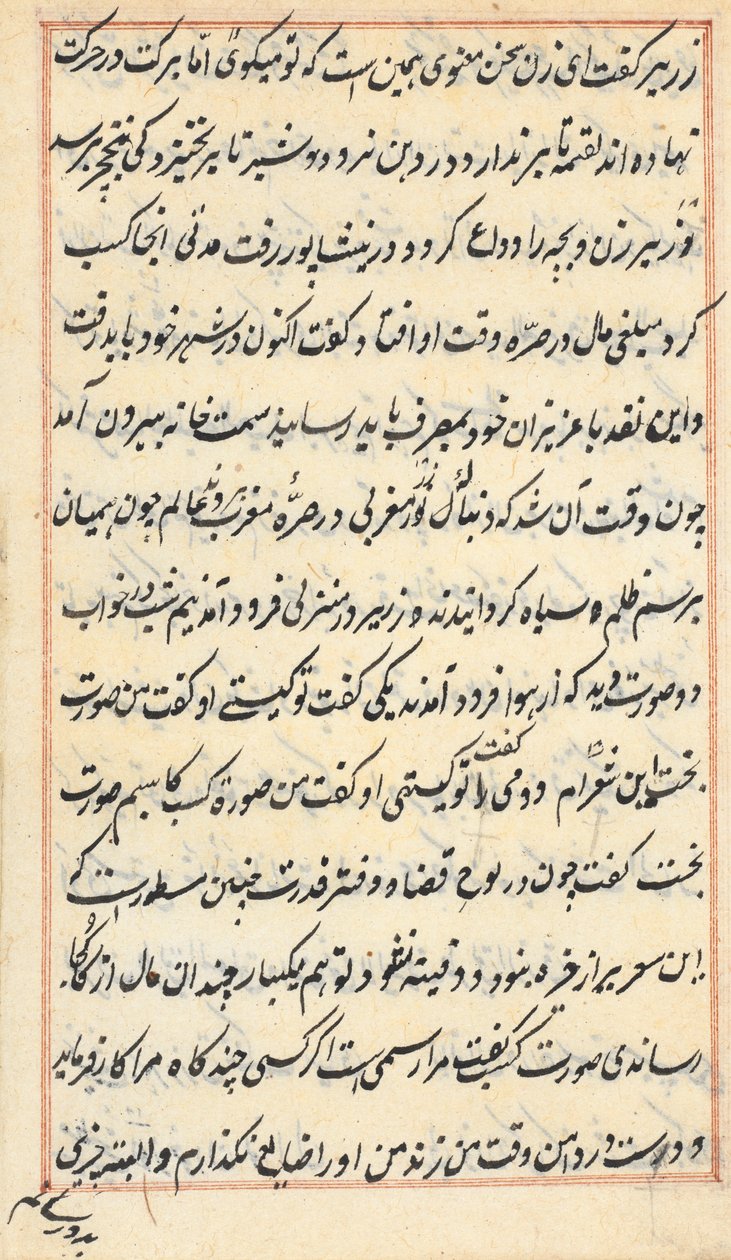 زریر گفت ای زن سخن معنوی همین است که تو میکوئی اما برکت در حرکت
نهاده اند لقمه تا بر ندارد در دهن نرود و شیر تا بر نخیزد کی بنخچیر برسد
زریر زن و بچه را وداع کرد و در نیشاپور رفت مدتی انجا کسب
کرد مبلغی مال در صرّه وقت او افتاد کفت اکنون در شهر خود باید رفت
و این نقد با عزیزان خود بمصرف باید رسانید سمت خانه بیرون آمد
چون وقت آن شد که دنبال زر مغربی در صرّه مغرب روند عالم چون همیان
سیاه کردانیدند زریر در منزلی فرود آمد نیم شب در خواب
دو صورت دید که از هوا فرود آمدند یکی کفت تو کیستے او کفت من صورت
بخت این ام دومی را کفت تو کیستی او کفت من صورة کسب صورت
بخت کفت چون در لوح قضا و دفتر قدرت چنین مسطورست که
این از خره بنود و دفینه نقود تو هم یکبار چندان مال از کجا
رساندی صورت کسب کفت مرا رسمی است اگر کسی چند کاه مرا کار فرماید
و دست در دامن وقت من زند من او را ضایع نکذارم و البته چیزی
بدو رسانم